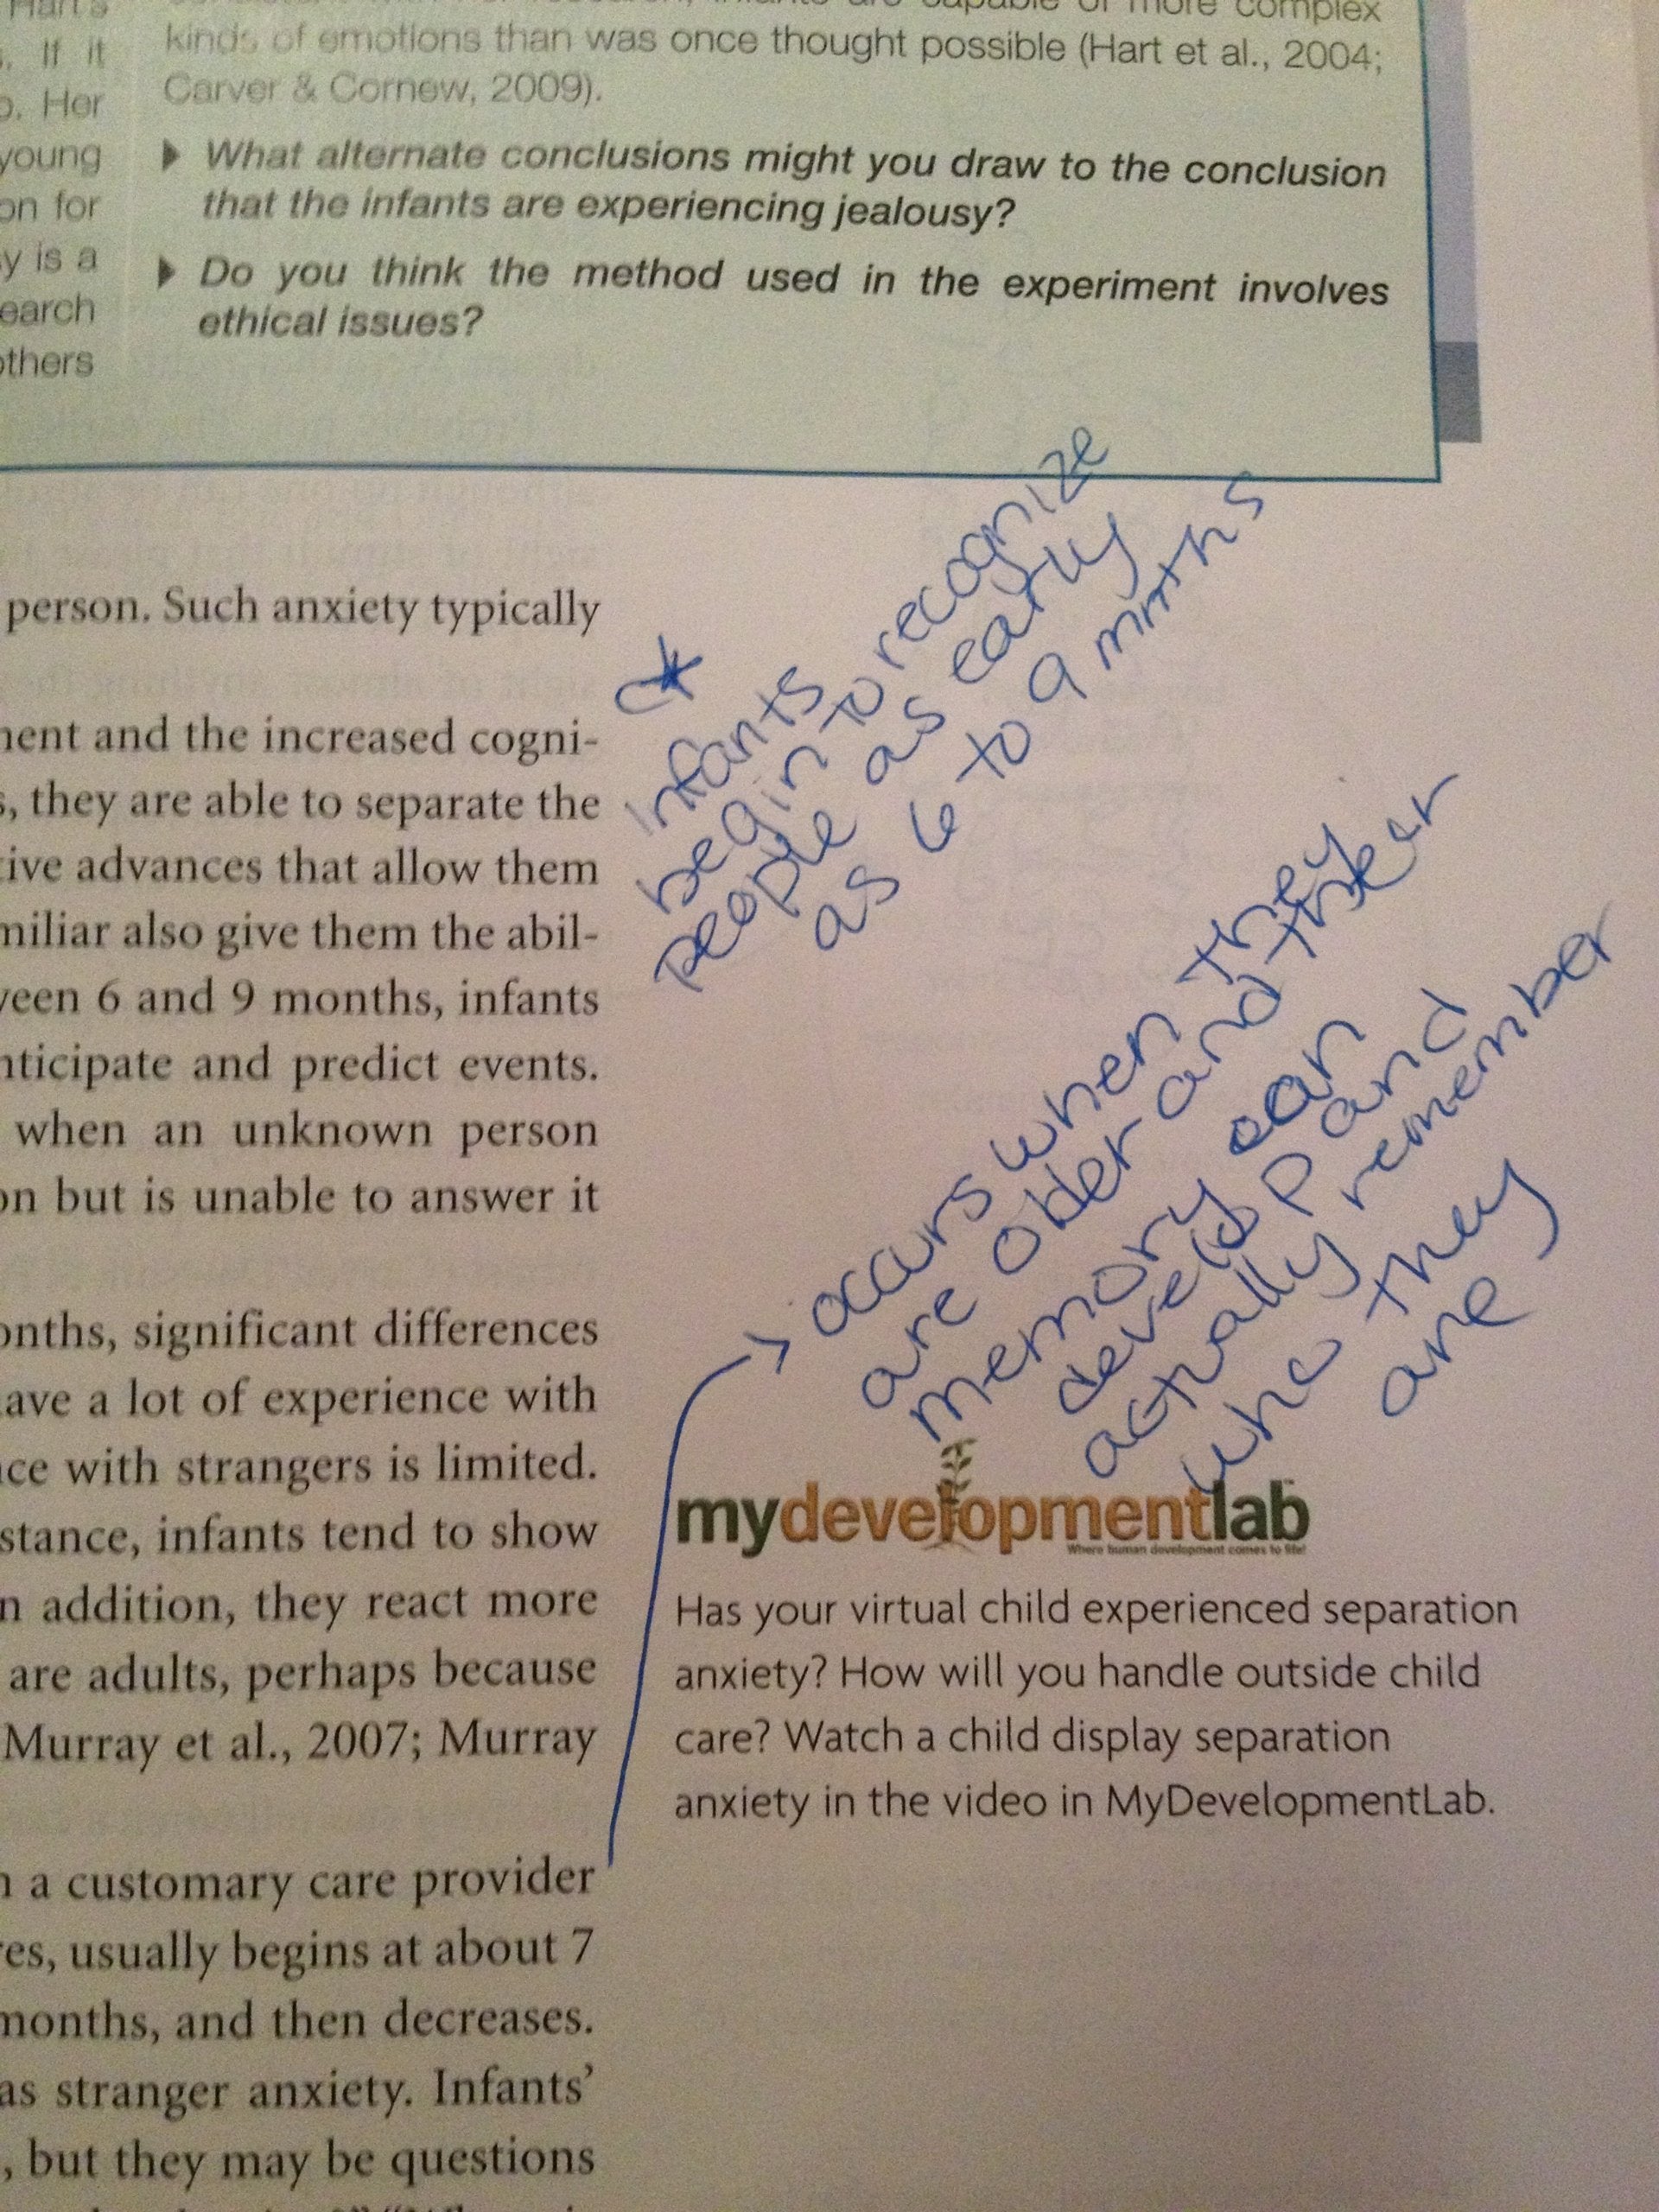 If it
kinds of emotions than was once thought possible (Hart et al., 2004;
Carver & Cornew, 2009).
Her
young
for
What alternate conclusions might you draw to the conclusion
that the infants are experiencing jealousy?
is a
Do you think the method used in the experiment involves
ethical issues?
person. Such anxiety typically
and the increased cogni-
they are able to separate the
advances that allow them
also give them the abil-
6 and 9 months, infants
and predict events.
when an unknown person
but is unable to answer it
significant differences
a lot of experience with
with strangers is limited.
infants tend to show
addition, they react more
are adults, perhaps because
Murray et al., 2007; Murray
a customary care provider
usually begins at about 7
months, and then decreases.
as stranger anxiety. Infants'
, but they may be questions
*
Infants
begin to recognize
people as early
as 6 to 9 mnths
occurs when they
are older and their
memory can
develop and
actually remember
who they
are
mydevelopmentlab
Where human development comes to life!
Has your virtual child experienced separation
anxiety? How will you handle outside child
care? Watch a child display separation
anxiety in the video in MyDevelopmentLab.